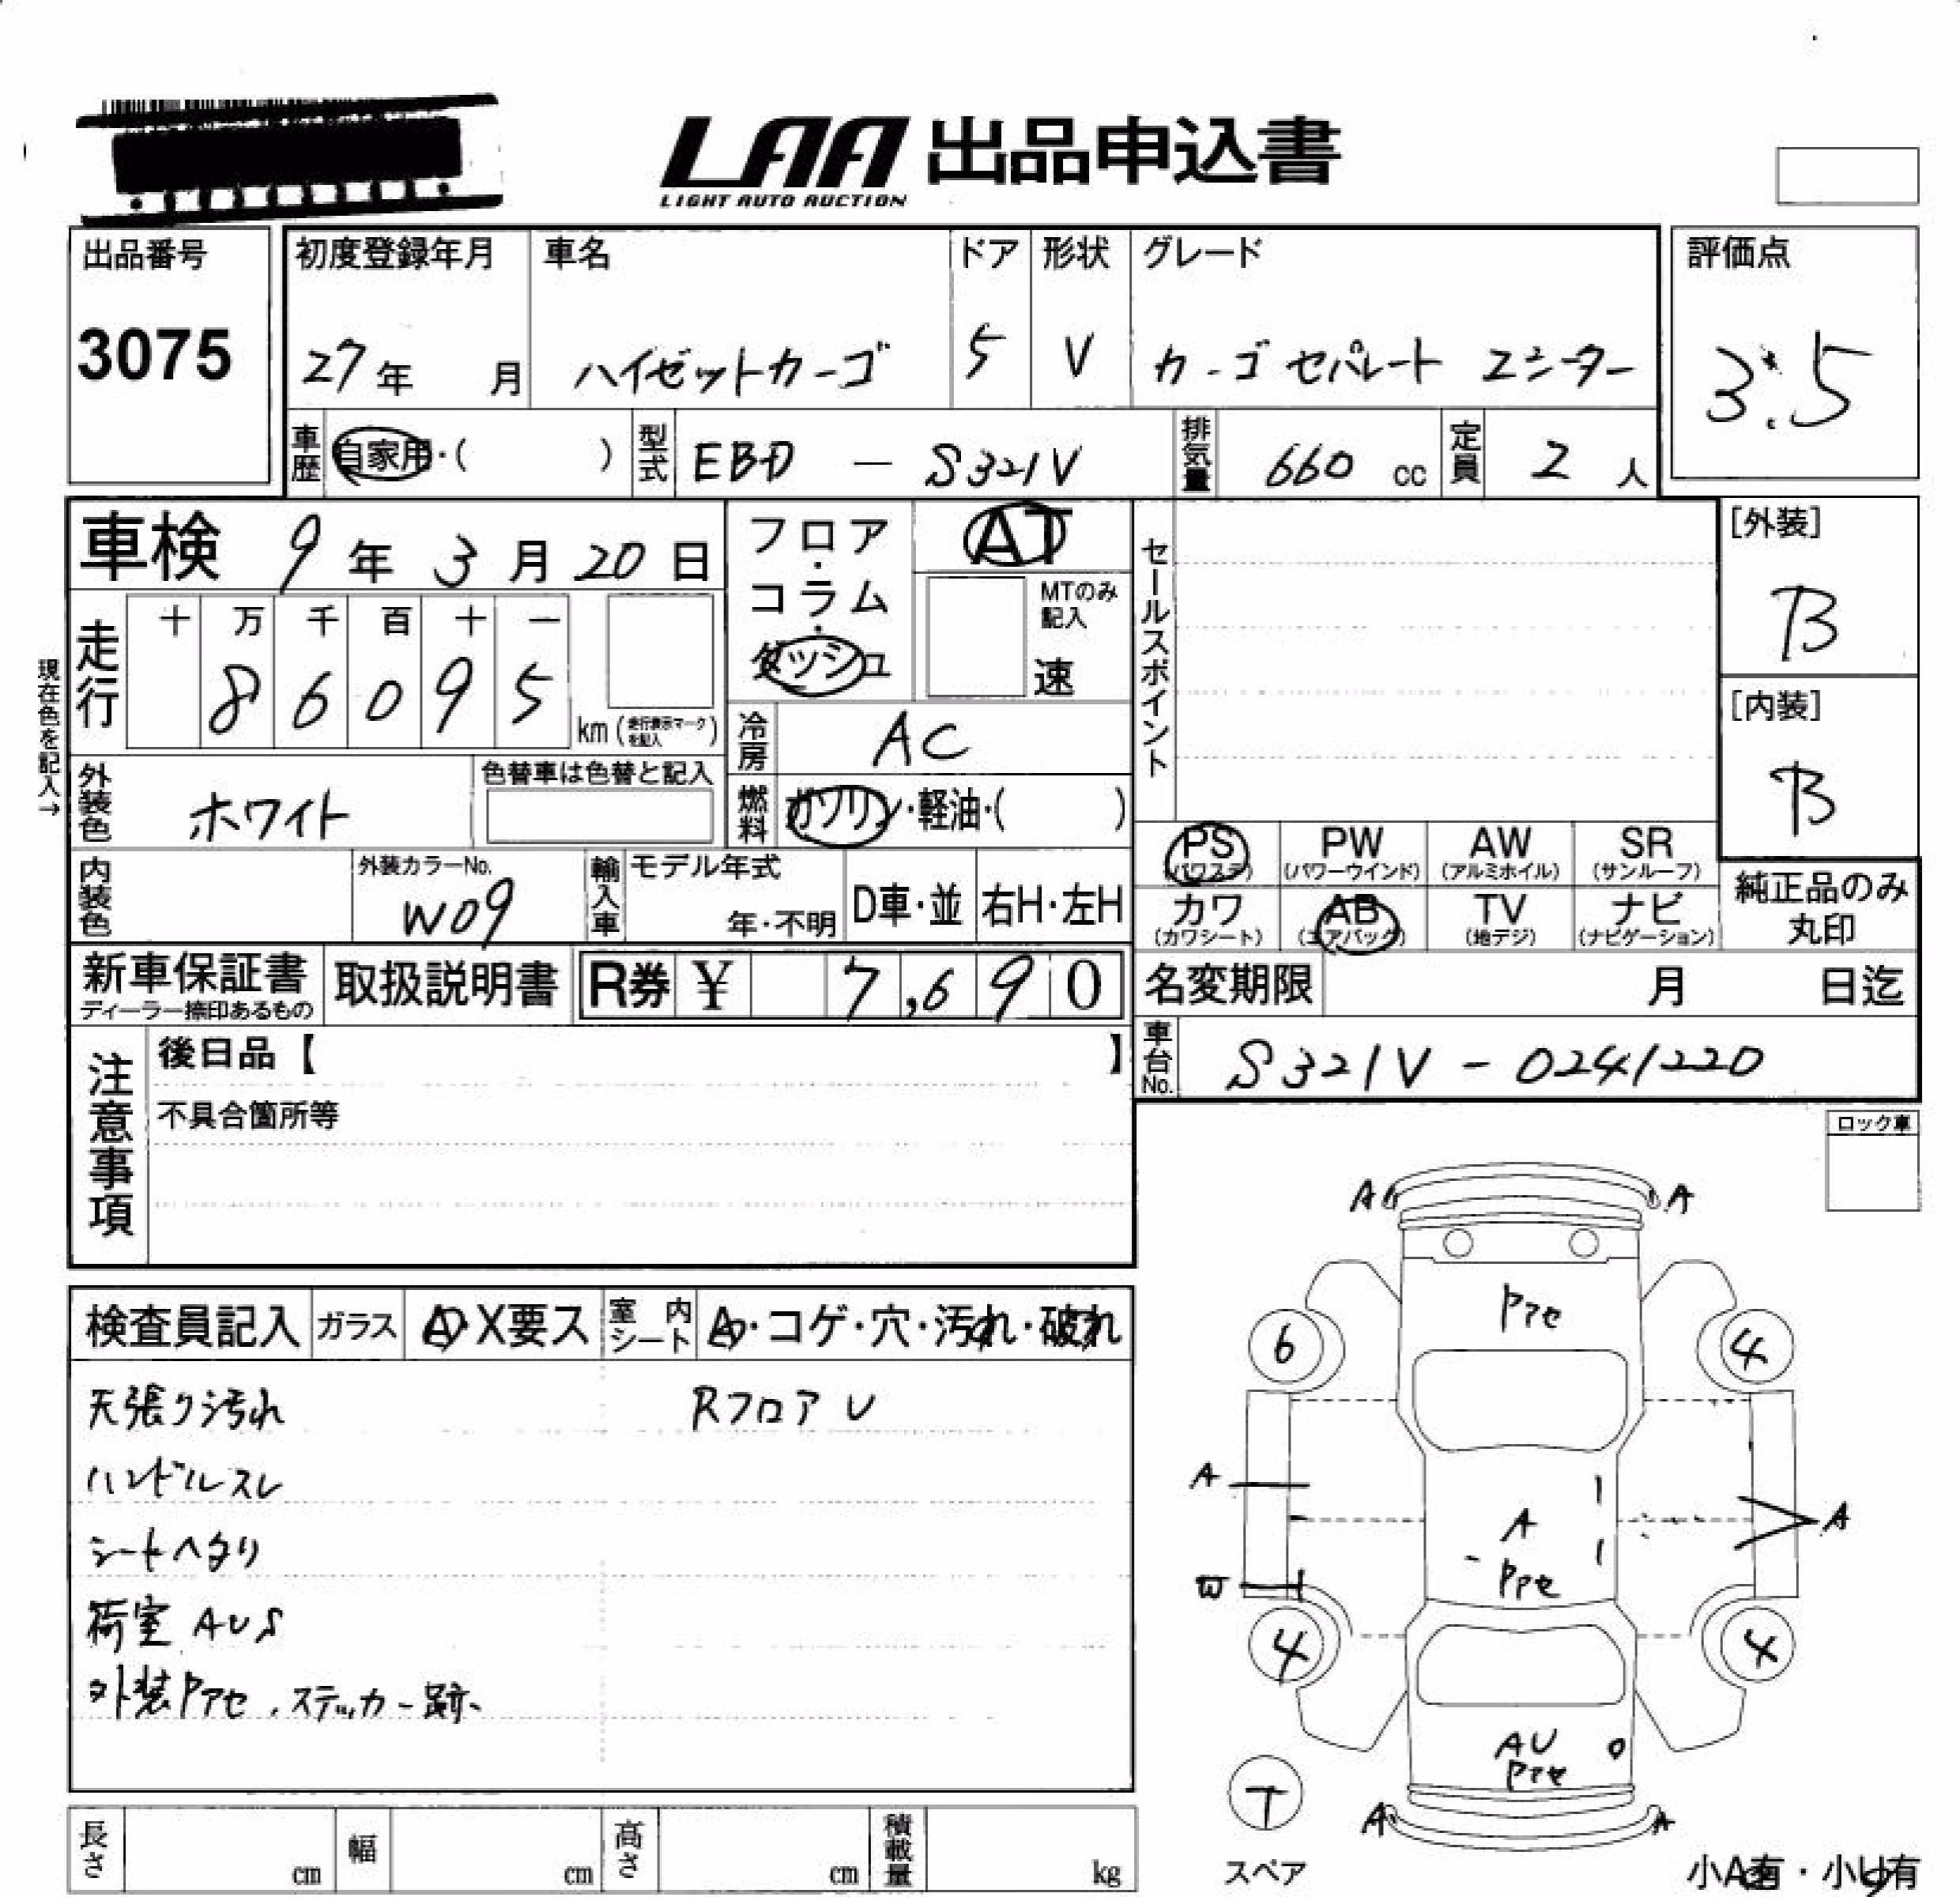 LAA 出品申込書
LIGHT AUTO AUCTION
出品番号
3075
初度登録年月
27年 月
車名
ハイゼットカーゴ
ドア
5
形状
V
グレード
カーゴ セパレート
評価点
3.5
車歴 自家用・( )
型式 EBD — S321V
排気量 660 cc
定員 2 人
車検 9年 3月 20日
フロア・コラム・ダッシュ
AT
MTのみ記入
速
セールスポイント
[外装]
B
[内装]
B
現在色を記入→
走行 十 万 千 百 十 一
8 6 0 9 5
km (走行表示マークを記入)
冷房 AC
外装色 ホワイト
色替車は色替と記入
燃料 ガソリン・軽油・( )
PS (パワステ) PW (パワーウインド) AW (アルミホイル) SR (サンルーフ)
カワ (カワシート) AB (エアバッグ) TV (地デジ) ナビ (ナビゲーション)
純正品のみ丸印
内装色
外装カラーNo.
W09
輸入車 モデル年式
年・不明
D車・並
右H・左H
新車保証書
ディーラー捺印あるもの
取扱説明書
R券 ¥ 7,690
名変期限 月 日迄
車台No. S321V - 0241220
注意事項
後日品【 】
不具合箇所等
ロック車
検査員記入 ガラス A・X要ス 室内シート ・コゲ・穴・汚れ・破れ
天張り汚れ Rフロア U
ハンドルスレ
シートヘタリ
荷室 AUS
外装Pアセ、ステッカー跡
A A
Pアセ
6 4
A
A
A
Pアセ
W
4 4
AU
Pアセ
T
A A
スペア
小A有・小U有
長さ cm 幅 cm 高さ cm 積載量 kg